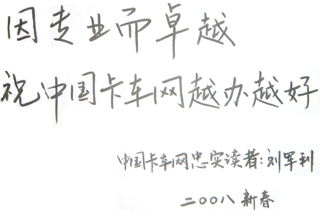 因专业而卓越
祝中国卡车网越办越好
中国卡车网忠实读者:刘军利
二00八新春